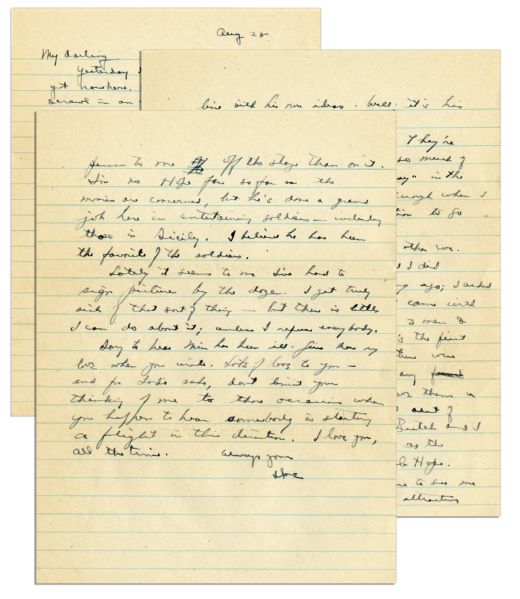 Aug 28
My darling
Yesterday I
get nowhere.
scrawl in an
live with his own ideas. Well, it's his
They're
so much of
in the
enough when I
to go
other war.
I did
ago; I asked
come until
3 men &
is the first
there were
any
them in
out of
Butch and I
as the
Hope.
to see me
attractive
funnier to me off the stage than on it.
I'm no Hope fan so far as the
movies are concerned, but he's done a grand
job here in entertaining soldiers — including
those in Sicily. I believe he has been
the favorite of the soldiers.
Lately it seems to me I've had to
sign pictures by the dozen. I get truly
sick of that sort of thing — but there is little
I can do about it; unless I refuse everybody.
Sorry to hear Min has been ill. Give her my
love when you write. Lots of love to you —
and for Lord's sake, don't limit your
thinking of me to those occasions when
you happen to hear somebody is starting
a flight in this direction. I love you,
all the time. Always your
Ike